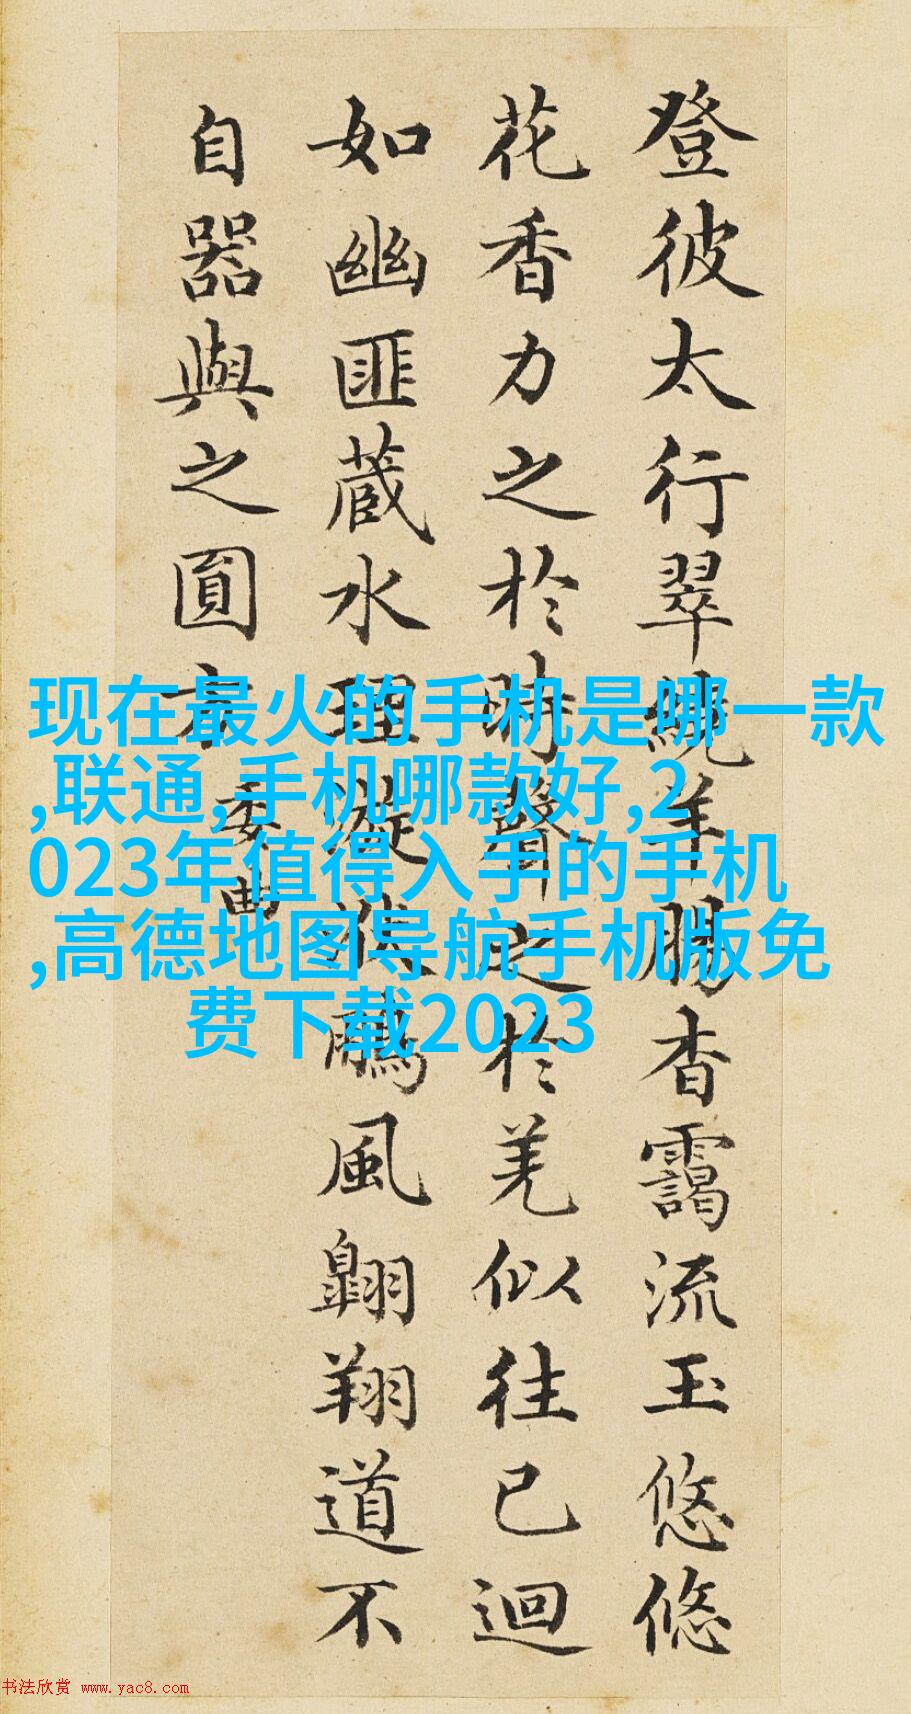 登彼太行翠繞羊腸杳靄流玉悠悠
花香力之於時聲之於羌似往已迴
如幽匪蔵水理漩洑鵬風翺翔道不
自器與之圓方
委曲
现在最火的手机是哪一款
,联通,手机哪款好,2
023年值得入手的手机
,高德地图导航手机版免
费下载2023
书法欣赏 www.yac8.com